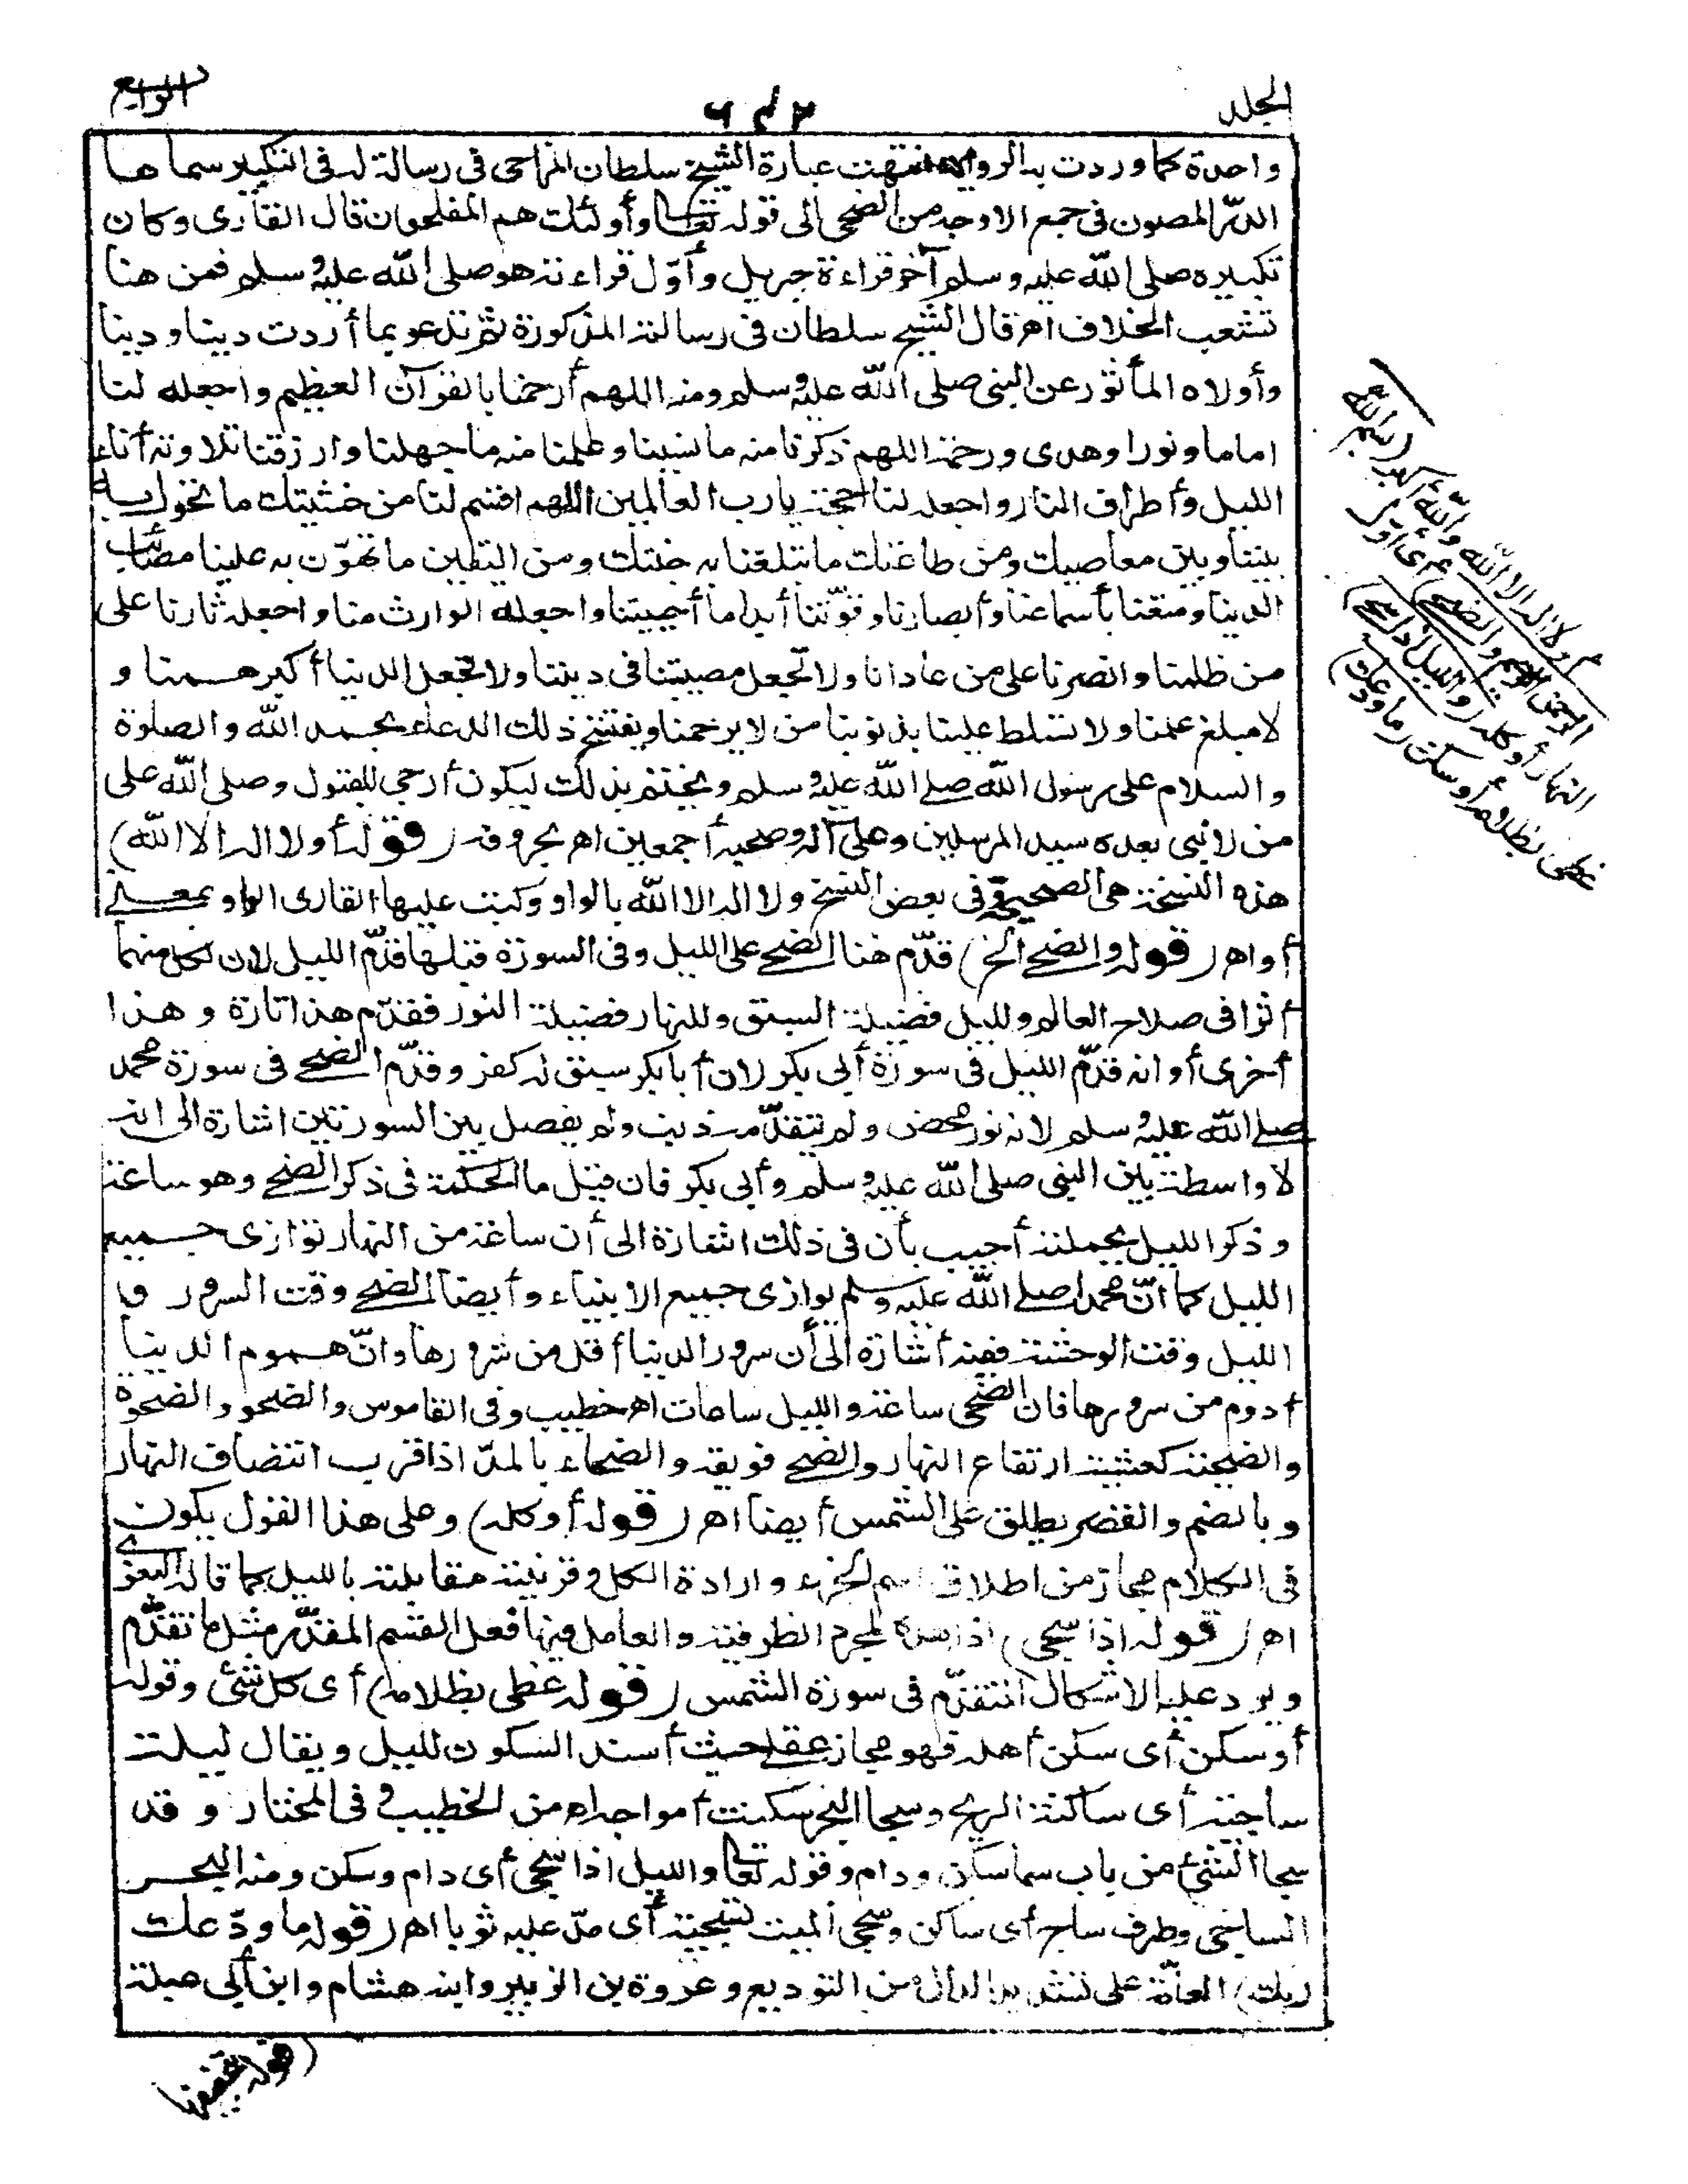 الجلد
٦٤٢
الرابع
واحدة كما وردت به الرواية انتهت عبارة الشيخ سلطان المزاحى فى رسالة له فى التكبير سماها
الدرّ المصون فى جمع الاوجه من الضحى الى قوله تعالى وأولئك هم المفلحون قال القارى وكان
تكبيره صلى الله عليه وسلم آخر قراءة جبريل وأوّل قراءته هو صلى الله عليه وسلم فمن هنا
تشعب الخلاف اهـ قال الشيخ سلطان فى رسالته المذكورة ثم تدعو بما أردت دينا ودينا
وأولاه المأثور عن النبى صلى الله عليه وسلم ومنه اللهم أرحمنا بالقرآن العظيم واجعله لنا
اماما ونورا وهدى ورحمة اللهم ذكرنا منه ما نسينا وعلمنا منه ما جهلنا وارزقنا تلاوته أناء
الليل وأطراف النار واجعله لنا حجة يارب العالمين اللهم اقسم لنا من خشيتك ما تحول به
بيننا وبين معاصيك ومن طاعتك ما تبلغنا به جنتك ومن اليقين ما تهوّن به علينا مصائب
الدينا ومتعنا بأسماعنا وأبصارنا وقوّتنا أبدا ما أحييتنا واجعله الوارث منا واجعله ثارنا على
من ظلمنا وانصرنا على من عادانا ولا تجعل مصيبتنا فى ديننا ولا تجعل الدنيا أكبر همنا و
لا مبلغ علمنا ولا تسلط علينا بذنوبنا من لا يرحمنا ويفتتح ذلك الدعاء بحمد الله والصلوة
والسلام على رسول الله صلى الله عليه وسلم ويختتم بذلك ليكون أرجى للقبول وصلى الله على
من لا نبى بعده سيد المرسلين وعلى آله وصحبه أجمعين اهـ بحروفه (قوله أولا اله الا الله)
هذه النسخة هى الصحيحة وفى بعض النسخ ولا اله الا الله بالواو وكتب عليها القارى الواو بمعنى
أو اهـ (قوله والضحى الخ) قدّم هنا الضحى على الليل وفى السورة قبلها قدّم الليل لان لكل منهما
أثرا فى صلاح العالم ولليل فضيلة السبق وللنهار فضيلة النور فقدّم هذا تارة وهذا
أخرى أو انه قدّم الليل فى سورة أبى بكر لان أبا بكر سبق له كفر وقدّم الضحى فى سورة محمد
صلى الله عليه وسلم لانه نور محض ولم يتقدّمه ذنب ولم يفصل بين السورتين اشارة الى انه
لا واسطة بين النبى صلى الله عليه وسلم وأبى بكر فان قيل ما الحكمة فى ذكر الضحى وهو ساعة
وذكر الليل بجملته أجيب بأن فى ذلك اشارة الى أن ساعة من النهار توازى جميع
الليل كما انّ محمدا صلى الله عليه وسلم يوازى جميع الانبياء وأيضا الضحى وقت السرور و
الليل وقت الوحشة ففيه أشارة الى أن سرور الدنيا أقل من شرورها وانّ هموم الدينا
أدوم من سرورها فان الضحى ساعة والليل ساعات اهـ خطيب وفى القاموس والضحو والضحوة
والضحية كعشية ارتفاع النهار والضحى فويقه والضحاء بالمدّ اذا قرب انتصاف النهار
وبالضم والقصر يطلق على الشمس أيضا اهـ (قوله أو كله) وعلى هذا القول يكون
فى الكلام مجاز من اطلاق اسم الجزء وارادة الكل وقرينته مقابلته بالليل كما قاله البغوى
اهـ (قوله اذا سجى) اذا هذه لمجرد الظرفية والعامل فيها فعل القسم المقدّر مثل ما تقدّم
ويرد عليه الاشكال المتقدّم فى سورة الشمس (قوله غطى بظلامه) أى كل شئ وقوله
أو سكن أى سكن أهله فهو مجاز عقلى حيث أسند السكون لليل ويقال ليلة
ساجية أى ساكنة الريح وسجا البحر سكنت أمواجه اهـ من الخطيب وفى المختار وقد
سجا الشئ من باب سما سكن ودام وقوله تعالى والليل اذا سجى أى دام وسكن ومنه البحر
الساجى وطرف ساج أى ساكن وسجى الميت تسجية أى مدّ عليه ثوبا اهـ (قوله ما ودّعك
ربك) العامّة على تشديد الدال من التوديع وعروة بن الزبير وابنه هشام وابن أبى عبلة
م ولا اله الا الله والله أكبر (بسم الله
الرحمن الرحيم والضحى) أى أول
النهار أو كله (والليل اذا سجى)
غطى بظلامه أو سكن (ما ودعك)
(قوله بتخفيفها